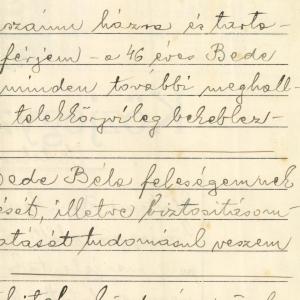 számú házra és tarto-
férjem - a 46 éves Bede
minden további meghall-
telekkönyvileg bekeblez-
Bede Béla feleségemnek
ését, illetve biztosításom-
atását tudomásul veszem